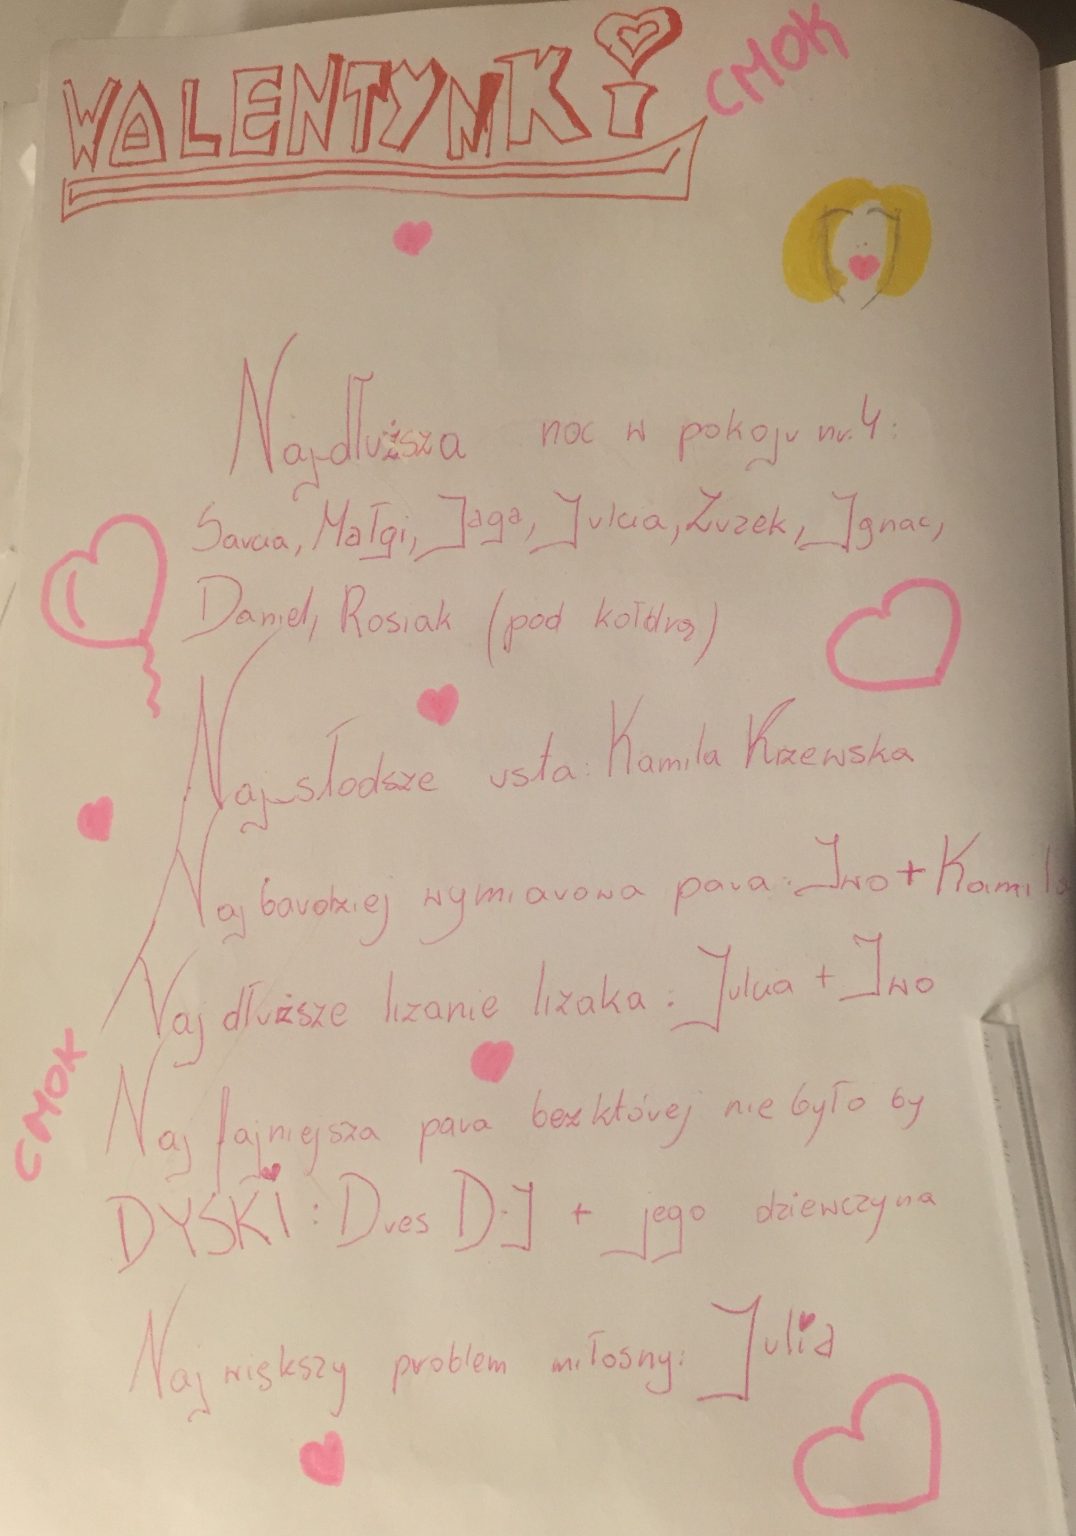 WALENTYNKi
CMOK
Najdłuższa noc w pokoju nr. 4:
Sarcia, Małgi, Jaga, Julcia, Żurek, Ignac,
Daniel, Rosiak (pod kołdrą)
Najsłodsze usta: Kamila Krzewska
Naj bardziej wymiarowa para: Iwo + Kamila
Naj dłuższe lizanie lizaka: Julcia + Iwo
CMOK
Naj fajniejsza para bez której nie było by
DYSKi: Dres D.J + jego dziewczyna
Naj większy problem miłosny: Julia